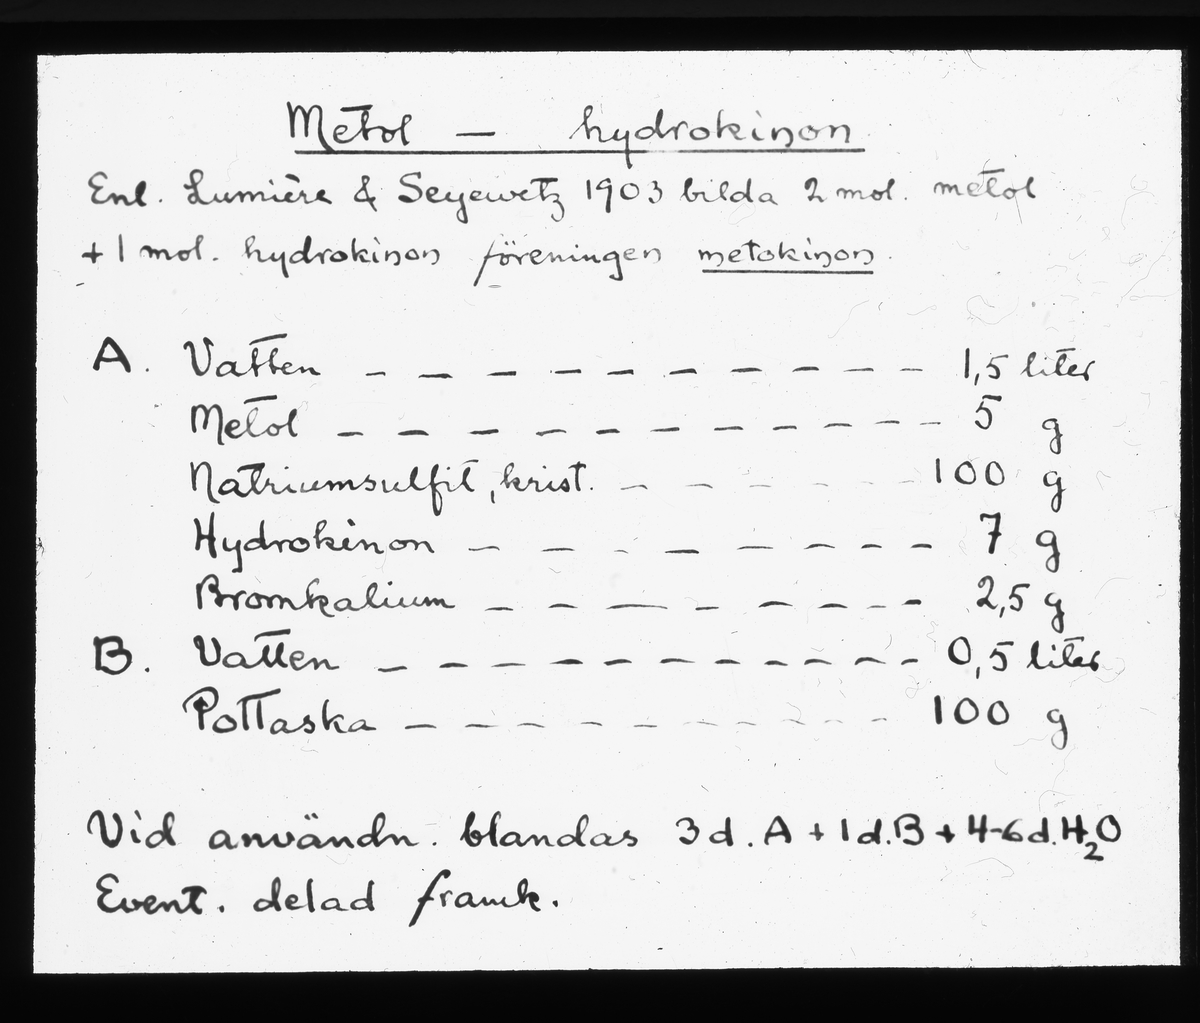 Metol — hydrokinon
Enl. Lumière & Seyewetz 1903 bilda 2 mol. metol
+ 1 mol. hydrokinon föreningen metokinon.
A. Vatten — — — — — — — — — — — 1,5 liter
Metol — — — — — — — — — — — 5 g
Natriumsulfit, krist. — — — — — — 100 g
Hydrokinon — — — — — — — — — 7 g
Bromkalium — — — — — — — — 2,5 g
B. Vatten — — — — — — — — — — — 0,5 liter
Pottaska — — — — — — — — — — 100 g
Vid användn. blandas 3 d. A + 1 d. B + 4-6 d. H₂O
Event. delad framk.